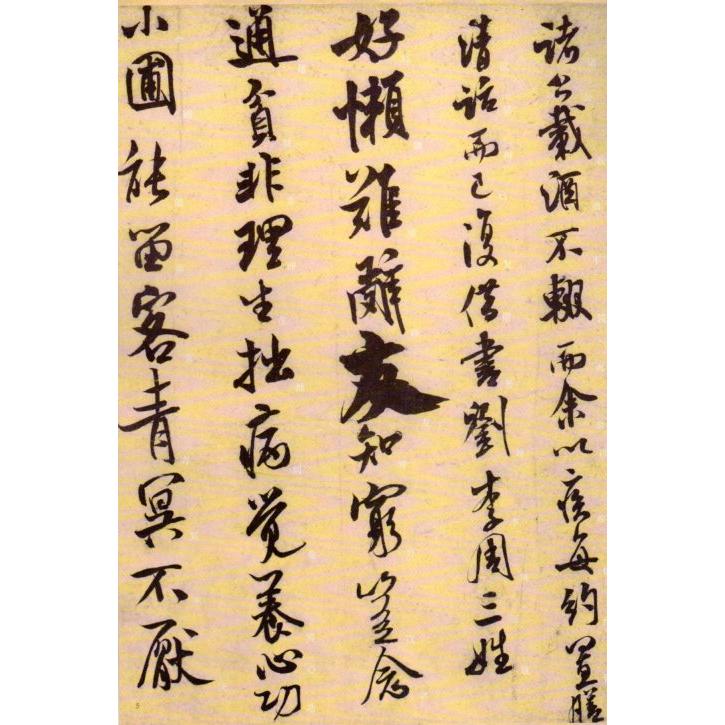 諸公載酒不輟而余以疾每約置膳
清話而已復借書劉李周三姓
好懶難辭友知窮豈念
通貧非理生拙病覺養心功
小圃能留客青冥不厭